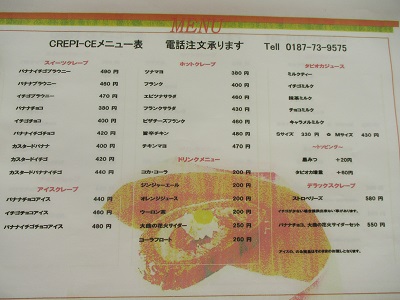 MENU
CREPI-CEメニュー表 電話注文承ります Tell 0187-73-9575
スイーツクレープ
バナナイチゴブラウニー 490 円
バナナブラウニー 480 円
イチゴブラウニー 470 円
バナナチョコ 380 円
イチゴチョコ 400 円
バナナイチゴチョコ 420 円
カスタードバナナ 400 円
カスタードイチゴ 420 円
カスタードバナナイチゴ 440 円
アイスクレープ
バナナチョコアイス 440 円
イチゴチョコアイス 460 円
バナナイチゴチョコアイス 480 円
ホットクレープ
ツナマヨ 380 円
フランク 400 円
エビツナサラダ 460 円
フランクサラダ 430 円
ピザチーズフランク 460 円
旨辛チキン 480 円
チキンマヨ 470 円
ドリンクメニュー
コカ・コーラ 200 円
ジンジャーエール 200 円
オレンジジュース 200 円
ウーロン茶 200 円
大曲の花火サイダー 250 円
コーラフロート 260 円
タピオカジュース
ミルクティー
イチゴミルク
抹茶ミルク
チョコミルク
キャラメルミルク
Sサイズ 330 円 Mサイズ 430 円
トッピング
黒みつ +20円
タピオカ増量 +50円
デラックスクレープ
ストロベリーズ 580 円
バナナチョコ、大曲の花火サイダーセット 550 円